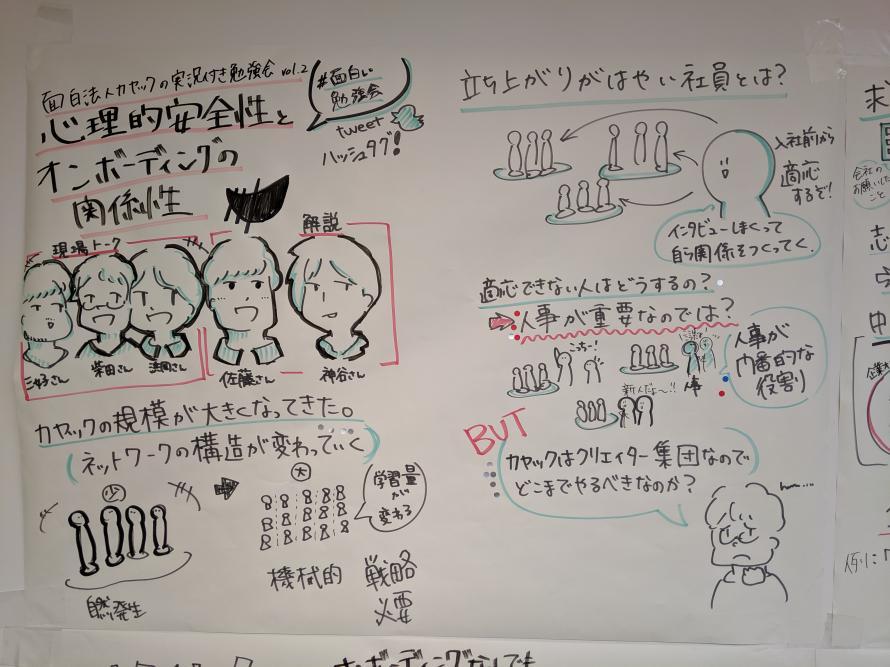 面白法人カヤックの実況付き勉強会 vol.2
心理的安全性と
オンボーディングの
関係性
#面白い
勉強会
tweet
ハッシュタグ!
現場トーク
解説
柴田さん
佐藤さん
神谷さん
カヤックの規模が大きくなってきた。
ネットワークの構造が変わっていく
少
大
学習量
が
変わる
自然発生
機械的
戦略
必要
立ち上がりがはやい社員とは?
入社前から
適応
するぞ!
インタビューしまくって
自ら関係をつくってく。
適応できない人はどうするの?
人事が重要なのでは?
こっちー!
新人だよ〜!!
人事
人事が
内番的な
役割
BUT
カヤックはクリエイター集団なので
どこまでやるべきなのか?
hum....
求
会社の
お願いしたい
こと
志
中
例に
オンボーディングなしでも